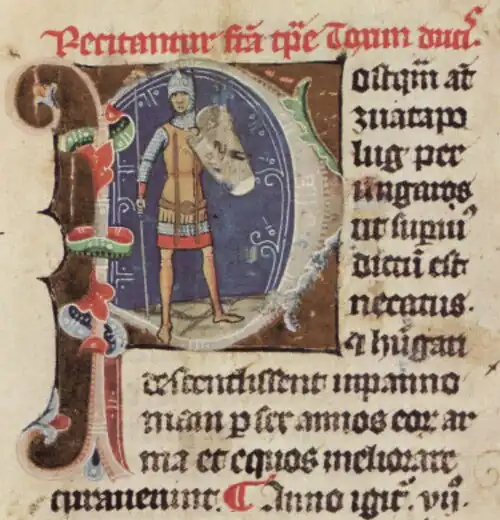 Recitantur fc̄a tp̄e Toxun ducis.
Postqm̄ aūt
zuatapo
lug per
ungaros
ut supius
dictū est
necatus.
et hūgari
descendissent in panno
niam p̱ sex annos eor̄ ar
ma et equos meliorare
curaverunt. ¶ Anno igit̄. vij.